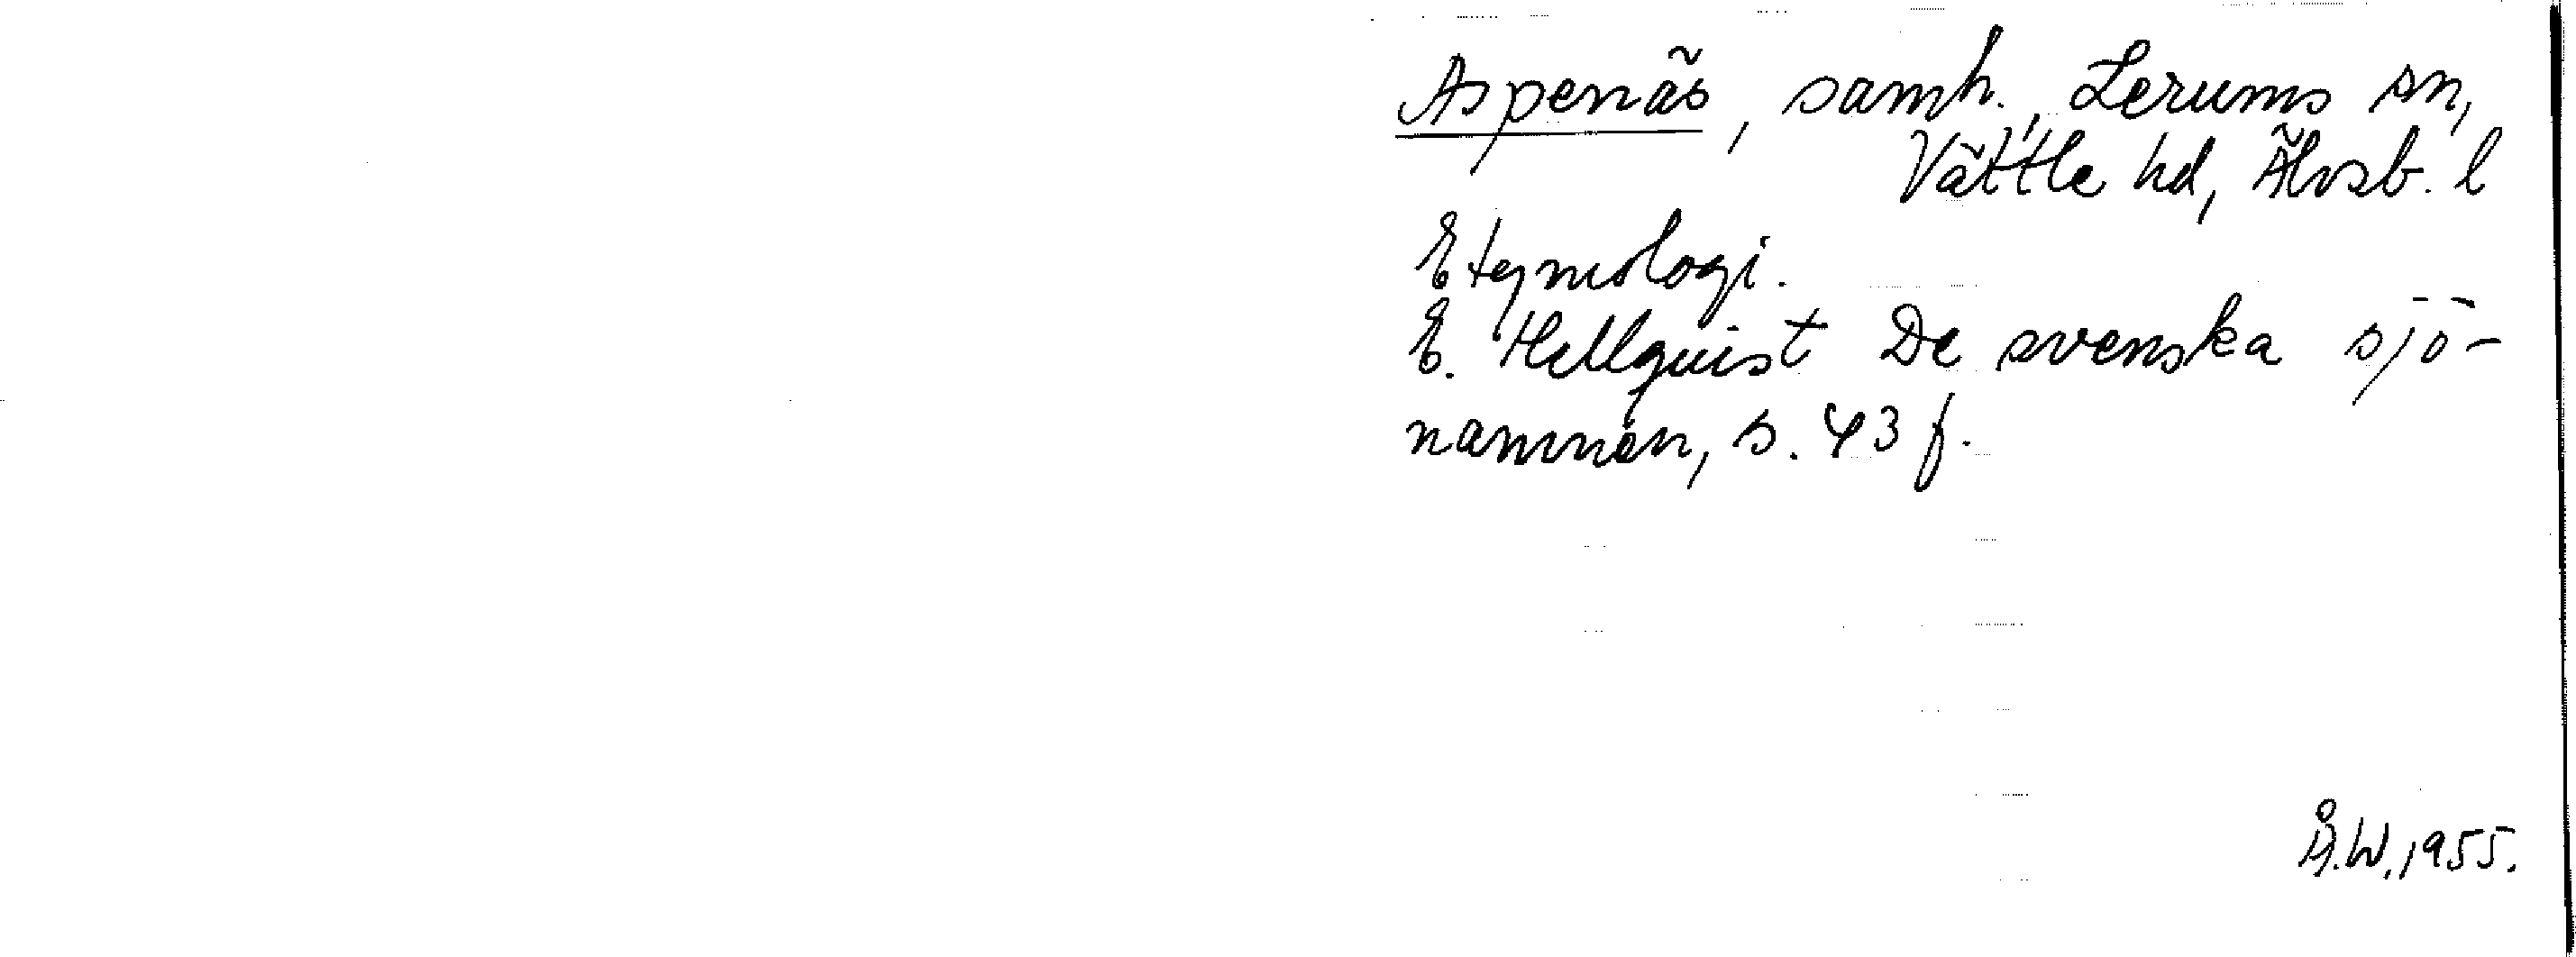 Aspenäs, samh., Lerums sn,
Vättle hd, Älvsb. l
Etymologi.
E. Hellquist De svenska sjö-
namnen, s. 43 f.
Å.W. 1955.